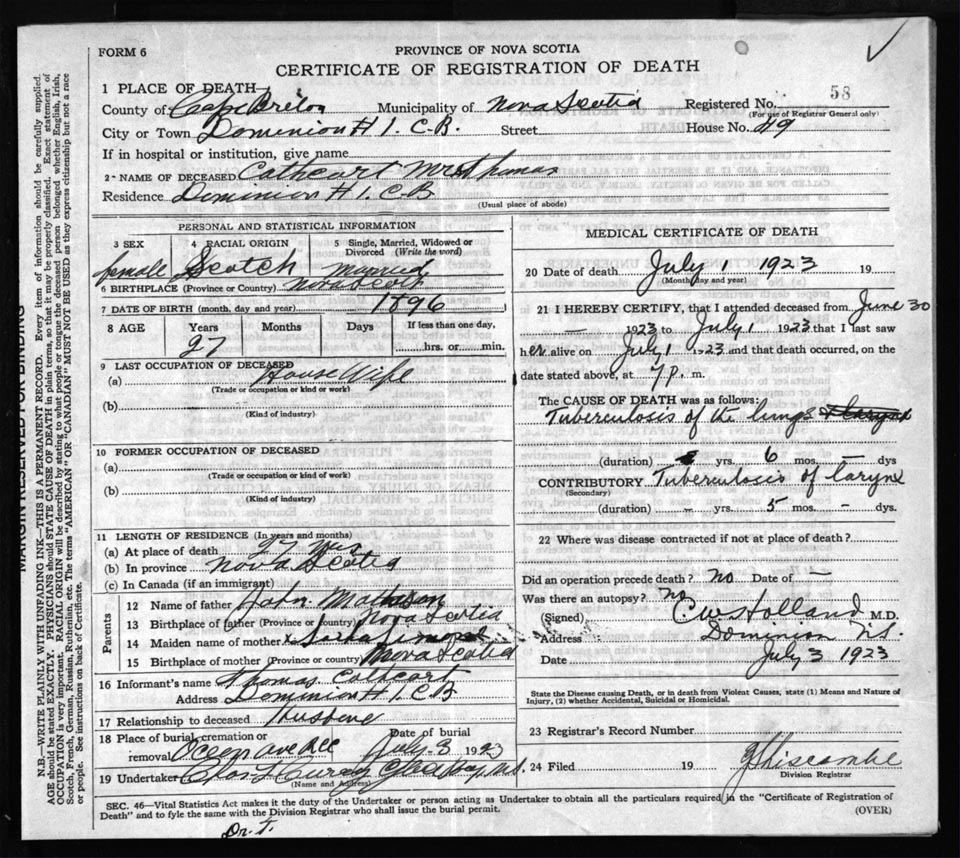 FORM 6
PROVINCE OF NOVA SCOTIA
CERTIFICATE OF REGISTRATION OF DEATH
1 PLACE OF DEATH
County of Cape Breton Municipality of Nova Scotia Registered No. 58
(For use of Registrar General only)
City or Town Dominion # 1. C.B. Street House No. 49
If in hospital or institution, give name
2 NAME OF DECEASED Cathcart Mrs Thomas
Residence Dominion # 1. C.B.
(Usual place of abode)
PERSONAL AND STATISTICAL INFORMATION
3 SEX 4 RACIAL ORIGIN 5 Single, Married, Widowed or Divorced (Write the word)
female Scotch Married
6 BIRTHPLACE (Province or Country) Nova Scotia
7 DATE OF BIRTH (month, day and year) 1896
8 AGE Years Months Days If less than one day,
27 hrs. or min.
9 LAST OCCUPATION OF DECEASED
(a) House Wife
(Trade or occupation or kind of work)
(b)
(Kind of industry)
10 FORMER OCCUPATION OF DECEASED
(a)
(Trade or occupation or kind of work)
(b)
(Kind of industry)
11 LENGTH OF RESIDENCE (In years and months)
(a) At place of death 27 yrs
(b) In province Nova Scotia
(c) In Canada (if an immigrant)
Parents
12 Name of father John
13 Birthplace of father (Province or country) Nova Scotia
14 Maiden name of mother
15 Birthplace of mother (Province or country) Nova Scotia
16 Informant's name Thomas Cathcart
Address Dominion # 1 C.B
17 Relationship to deceased Husbene
18 Place of burial, cremation or removal Date of burial
July 3 1923
19 Undertaker
(Name and Address)
MEDICAL CERTIFICATE OF DEATH
20 Date of death July 1 1923 19
(Month, day and year)
21 I HEREBY CERTIFY, that I attended deceased from June 30
— 1923 to July 1 1923 that I last saw
her alive on July 1 1923 and that death occurred, on the
date stated above, at 7 p. m.
The CAUSE OF DEATH was as follows:
Tuberculosis of the lungs & larynx
(duration) yrs. 6 mos. — dys
CONTRIBUTORY Tuberculosis of larynx
(Secondary)
(duration) – yrs. 5 mos. – dys.
22 Where was disease contracted if not at place of death?
Did an operation precede death? no Date of —
Was there an autopsy? no
(Signed) C W Holland M.D.
Address Dominion N.S.
Date July 3 1923
State the Disease causing Death, or in death from Violent Causes, state (1) Means and Nature of
Injury, (2) whether Accidental, Suicidal or Homicidal.
23 Registrar's Record Number
24 Filed 19
Division Registrar
SEC. 46—Vital Statistics Act makes it the duty of the Undertaker or person acting as Undertaker to obtain all the particulars required in the "Certificate of Registration of
Death" and to fyle the same with the Division Registrar who shall issue the burial permit.
(OVER)
Dr. T.
MARGIN RESERVED FOR BINDING
N.B.—WRITE PLAINLY WITH UNFADING INK—THIS IS A PERMANENT RECORD. Every item of information should be carefully supplied.
AGE should be stated EXACTLY. PHYSICIANS should STATE CAUSE OF DEATH in plain terms, so that it may be properly classified. Exact statement of
OCCUPATION is very important. RACIAL ORIGIN will be described by stating to what people or tongue the deceased person belonged whether English, Irish,
Scotch, French, German, Russian, Ruthenian, etc. The terms "AMERICAN" OR "CANADIAN" MUST NOT BE USED as they express citizenship but not a race
or people. See instructions on back of Certificate.